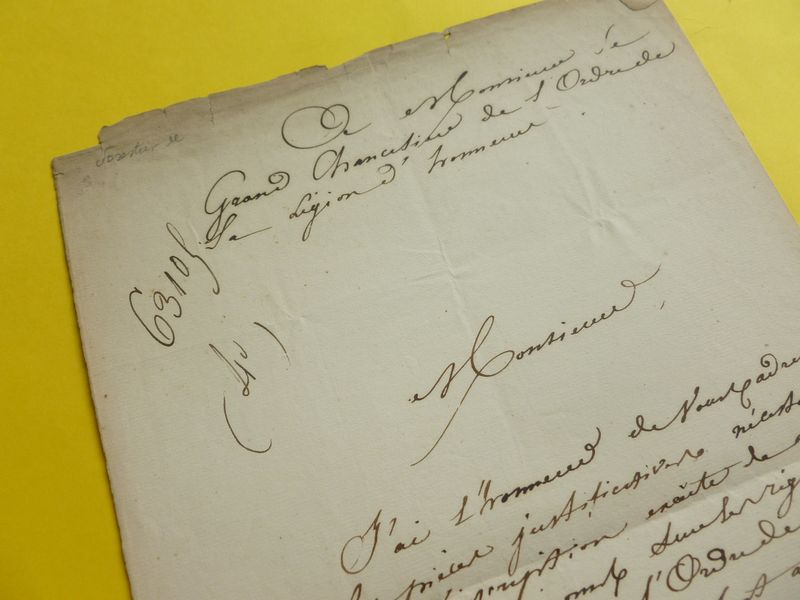 A Monsieur Le
Grand Chancelier de l'Ordre de
La Légion d'honneur
63105
Monsieur,
J'ai l'honneur de Vous adre
pièces justificatives nécess
inscription exacte de
sur les rig
l'Ordre de